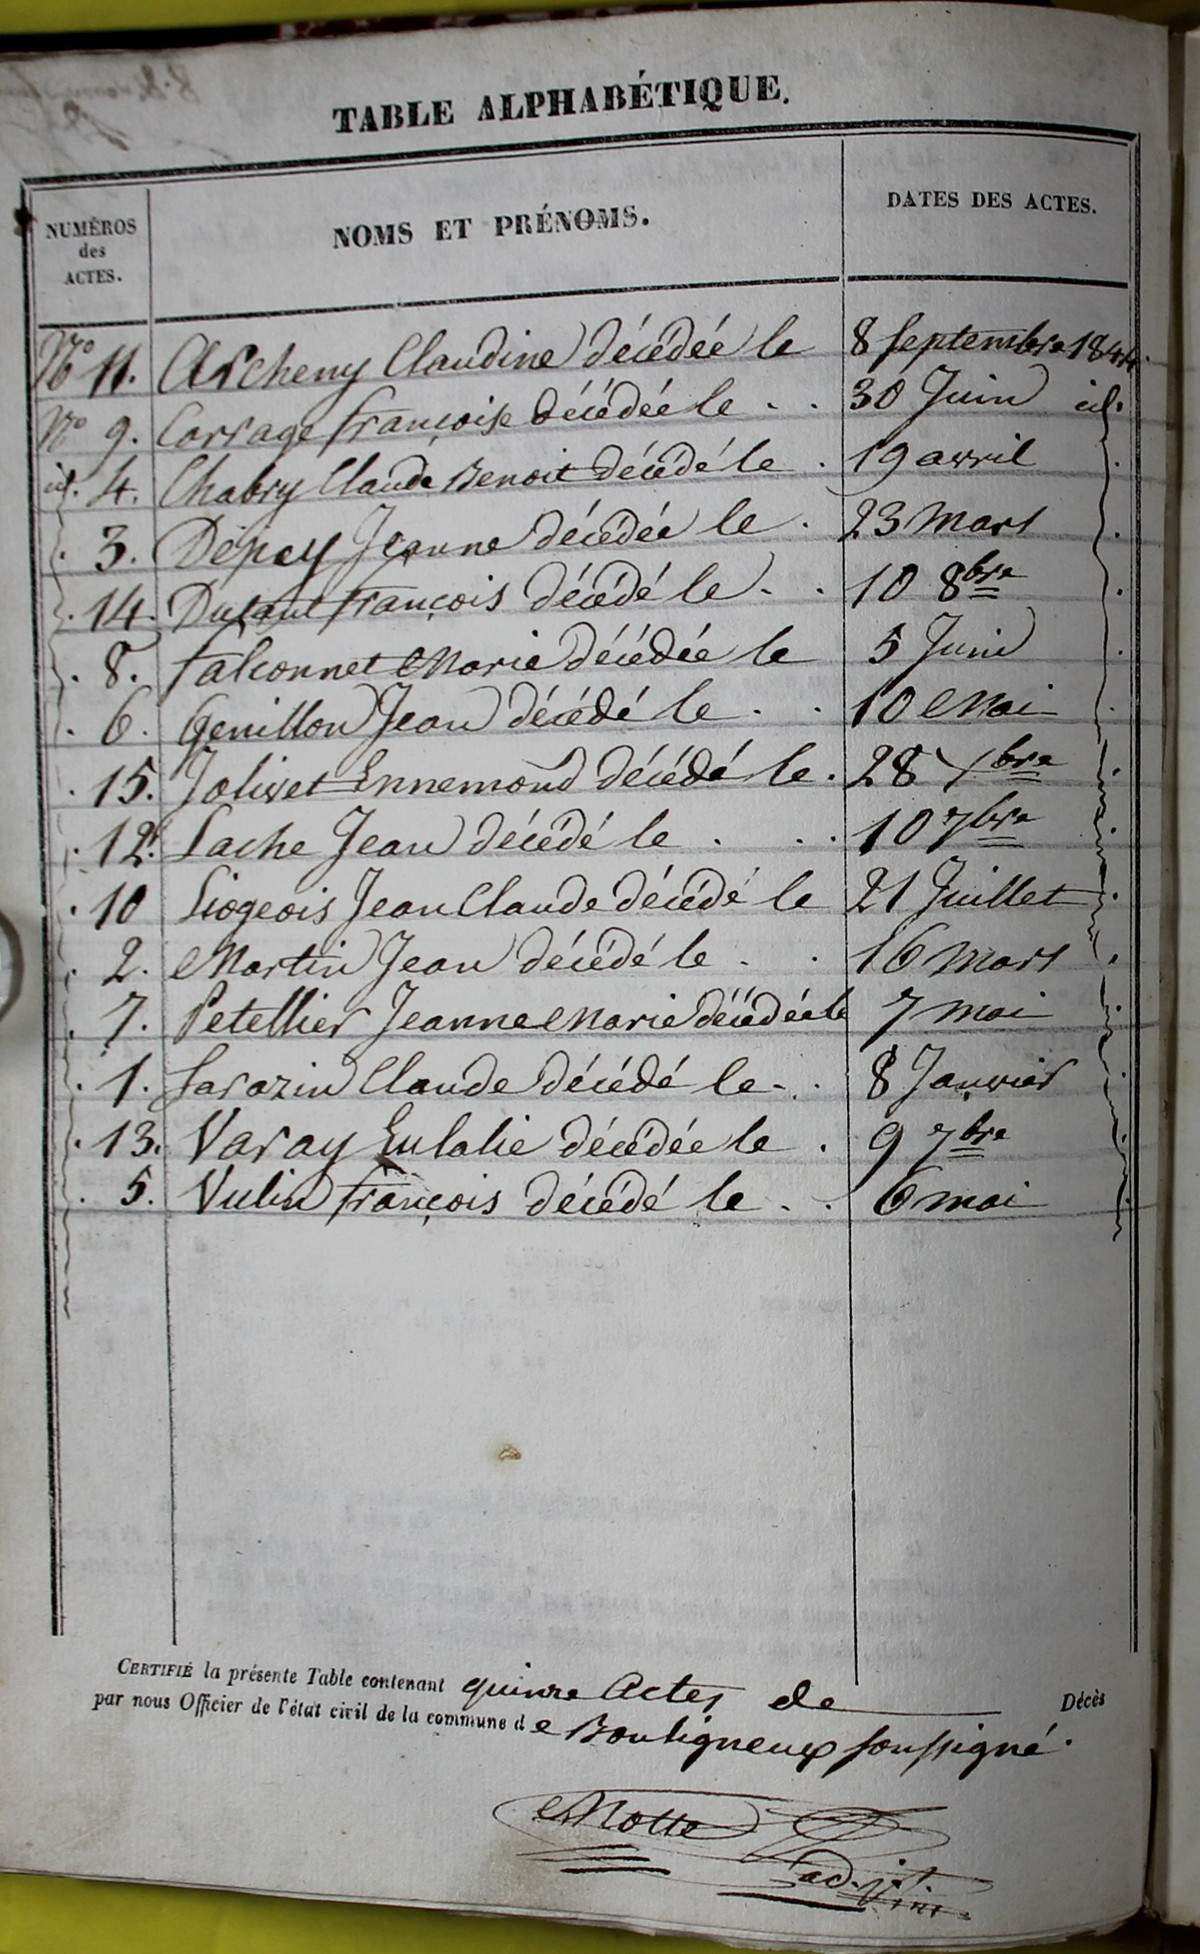 TABLE ALPHABÉTIQUE.
NUMÉROS des ACTES. NOMS ET PRÉNOMS. DATES DES ACTES.
No 11. Archeny Claudine décédée le 8 Septembre 1844.
No 9. Corsage françoise décédée le . . 30 Juin id.
id. 4. Chabry Claude Benoit décédé le . 19 avril
. 3. Dépey Jeanne décédée le . 23 Mars
. 14. Dutant françois décédé le . . 10 8bre
. 8. falconnet Marie décédée le 5 Juin
. 6. Genillon Jean décédé le . . 10 Mai
. 15. Jolivet Ennemond décédé le . 28 Xbre
. 12. Lache Jean décédé le . . . 10 7bre
. 10 Liogeois Jean Claude décédé le 21 Juillet
. 2. Martin Jean décédé le . . 16 Mars
. 7. Petellier Jeanne Marie décédée le 7 mai
. 1. Sarazin Claude décédé le . . 8 Janvier
. 13. Varay Eulalie décédée le . 9 7bre
. 5. Vulin françois décédé le . . 6 mai
CERTIFIÉ la présente Table contenant quinze Actes de Décès
par nous Officier de l'état civil de la commune de Bouligneux soussigné.
Motte
adjt.